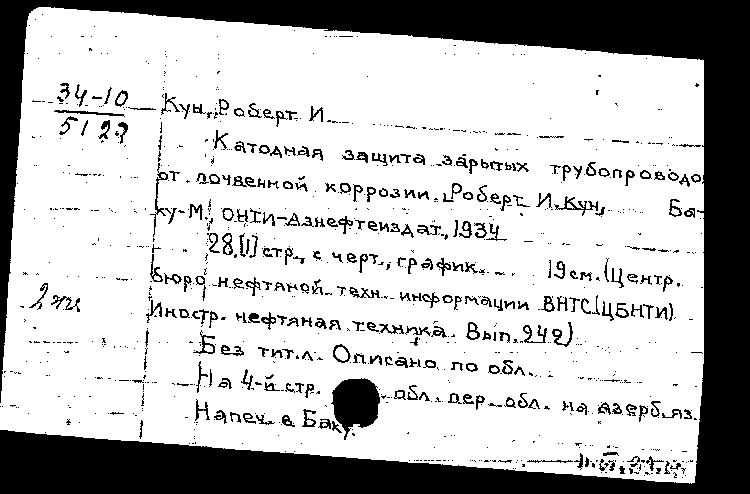 34-10
5122
Кун, Роберт И.
Катодная защита зарытых трубопроводо
от почвенной коррозии. Роберт И. Кун, Ба-
ку-М., ОНТИ-Азнефтеиздат, 1934
28,[1] стр., с черт., график. 19 см. (Центр.
бюро нефтяной техн. информации ВНТС (ЦБНТИ)
Иностр. нефтяная техника. Вып. 242)
2 экз
Без тит. л. Описано по обл.
На 4-й стр. обл. пер. обл. на азерб. яз.
Напеч. в Баку.